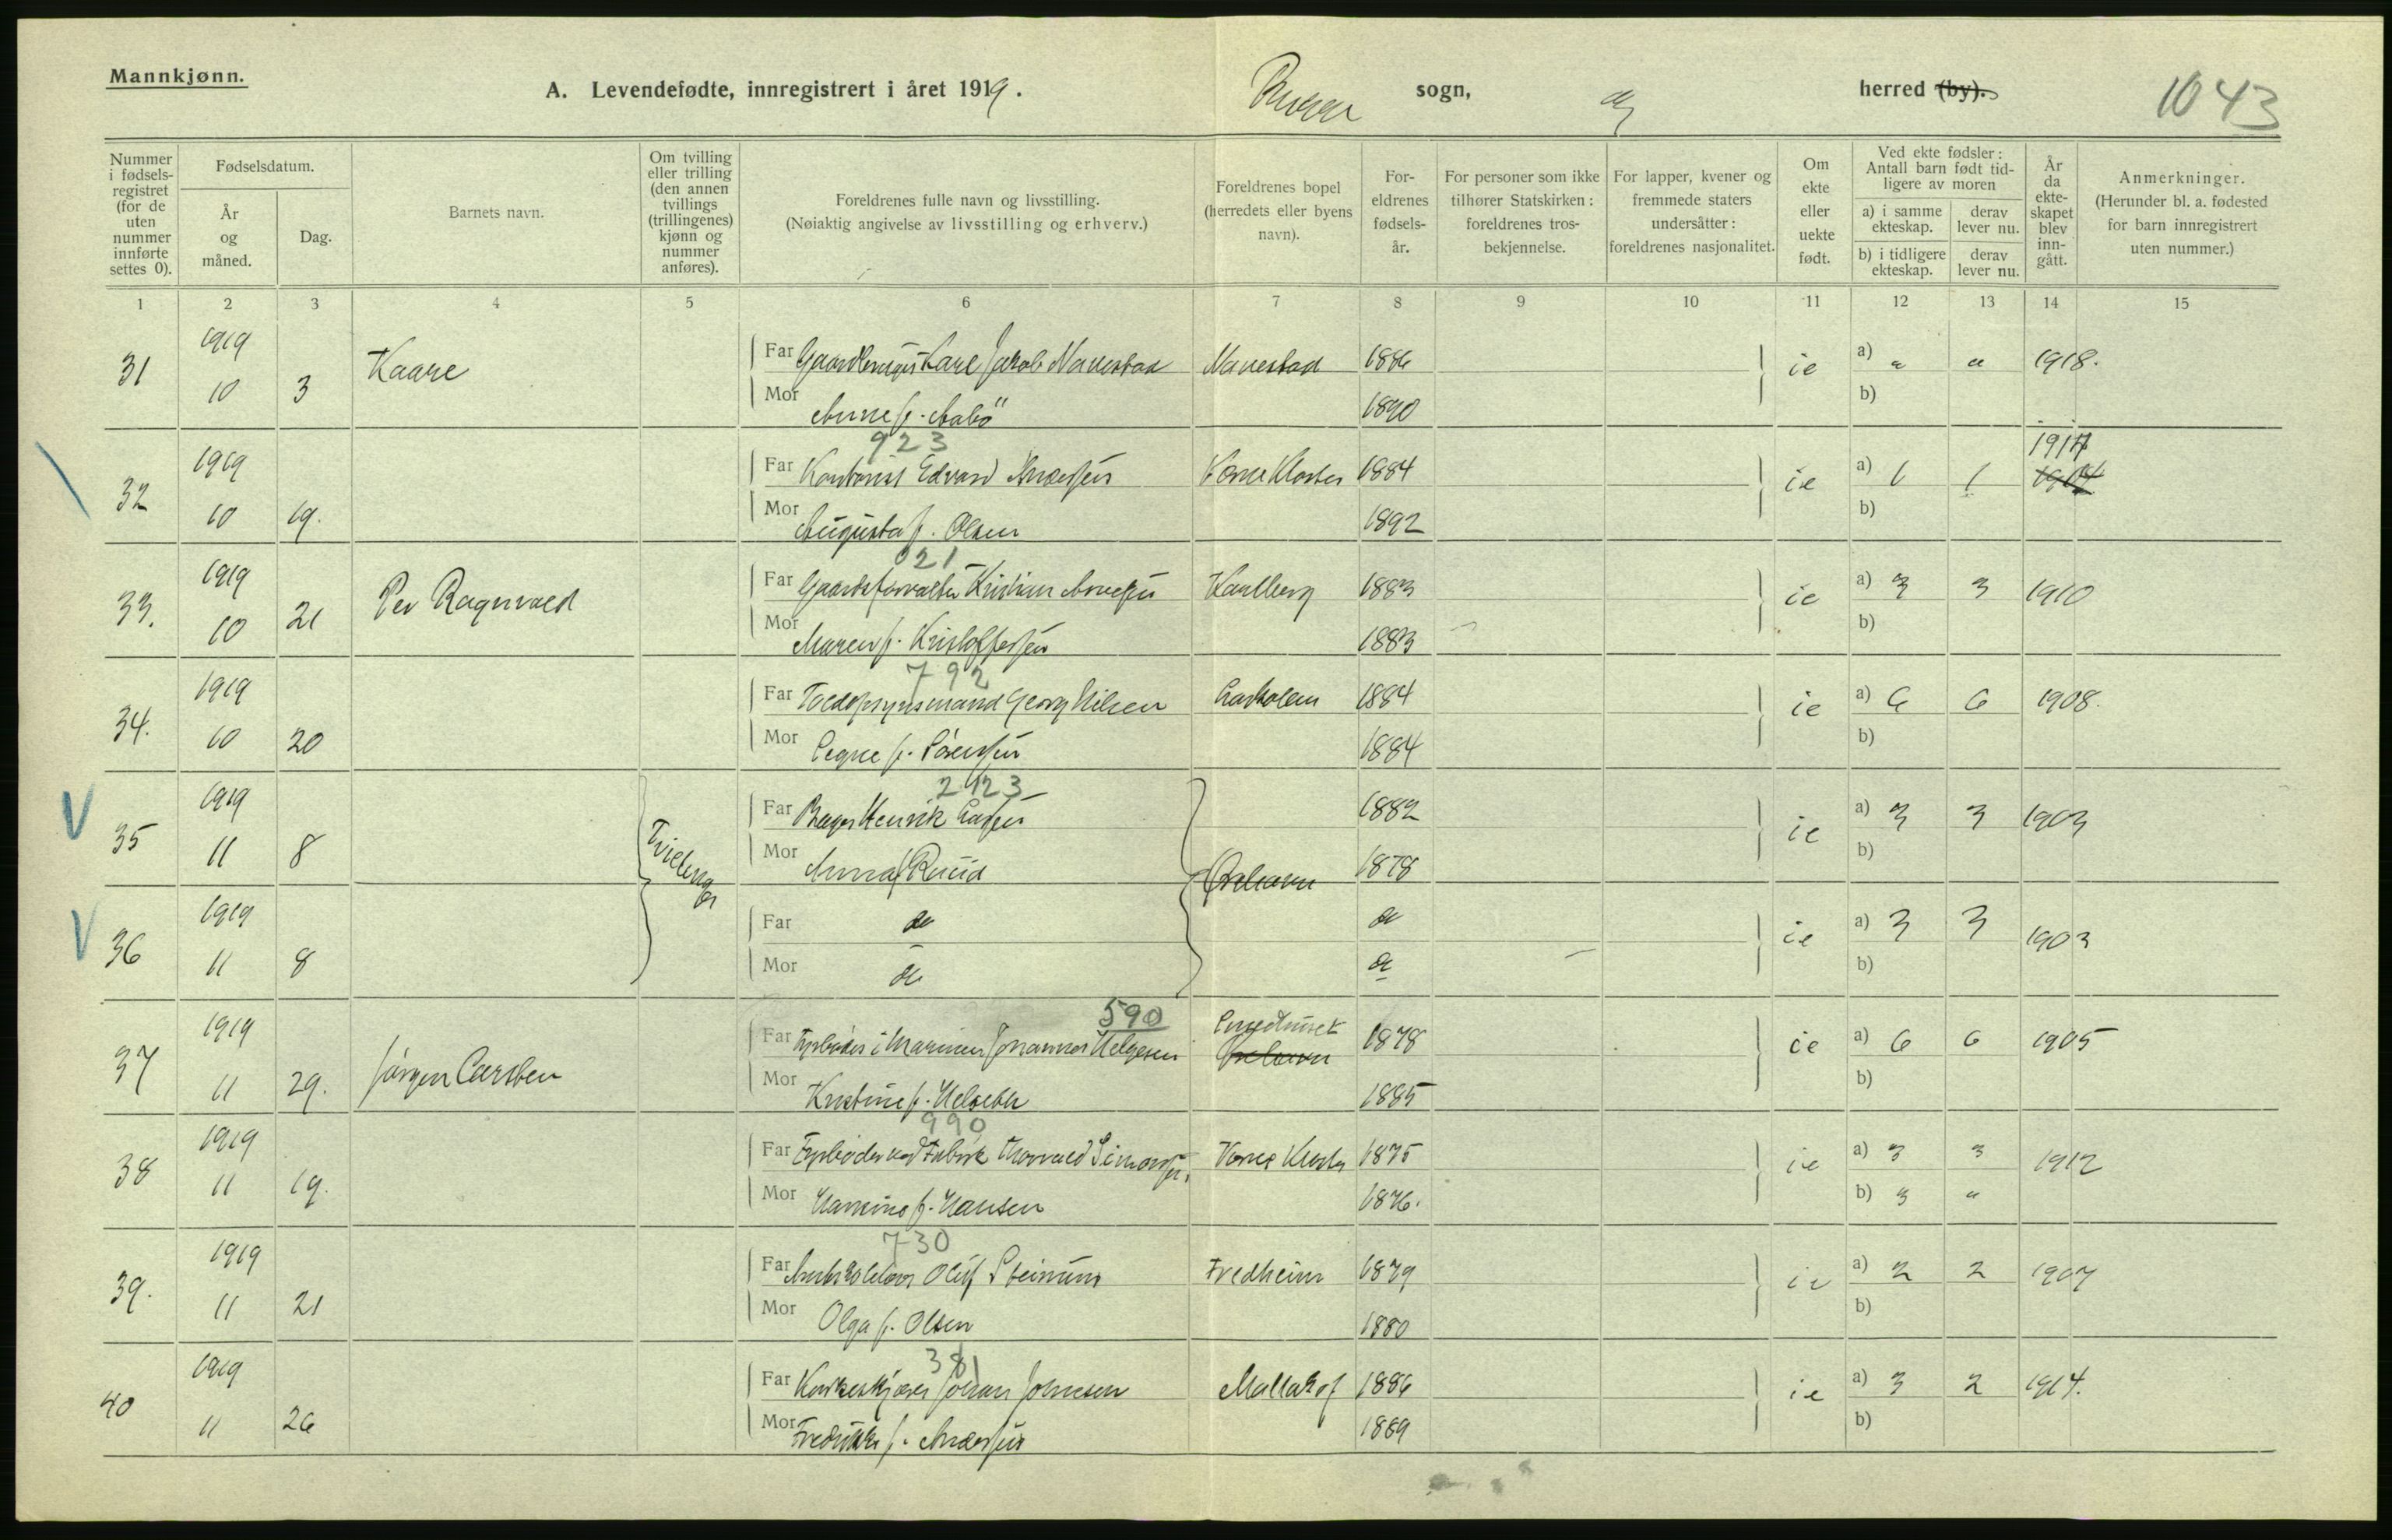 Mannkjønn.
A. Levendefødte, innregistrert i året 1919. sogn, herred (by). 1043
Nummer i fødselsregistret (for de uten nummer innførte settes 0).
Fødselsdatum.
År og måned.
Dag.
Barnets navn.
Om tvilling eller trilling (den annen tvillings (trillingenes) kjønn og nummer anføres).
Foreldrenes fulle navn og livsstilling.
(Nøiaktig angivelse av livsstilling og erhverv.)
Foreldrenes bopel (herredets eller byens navn).
Foreldrenes fødselsår.
For personer som ikke tilhører Statskirken: foreldrenes trosbekjennelse.
For lapper, kvener og fremmede staters undersåtter: foreldrenes nasjonalitet.
Om ekte eller uekte født.
Ved ekte fødsler: Antall barn født tidligere av moren
a) i samme ekteskap.
derav lever nu.
b) i tidligere ekteskap.
derav lever nu.
År da ekteskapet blev inngått.
Anmerkninger.
(Herunder bl. a. fødested for barn innregistrert uten nummer.)
1 2 3 4 5 6 7 8 9 10 11 12 13 14 15
31 1919 10 3 Kaare
Far Gaardbruger Karl Jakob Navestad Navestad 1886 ie a) " " 1918.
Mor Anne f. Aabö 1890 b)
923
32 1919 10 19.
Far Kontorist Edvard Andersen Værne Kloster 1884 ie a) 1 1 1917 1904
Mor Augusta f. Olsen 1892 b)
021
33. 1919 10 21 Per Ragnvald
Far Gaardsforvalter Kristian Karlberg 1883 ie a) 3 3 1910
Mor Maren f. Kristoffersen 1883 b)
792
34. 1919 10 20
Far Toldopsynsmand Georg Nilsen 1884 ie a) 6 6 1908.
Mor Signe f. Sörensen 1884 b)
2423
35 1919 11 8 Tvillinger
Far Henrik 1882 ie a) 3 3 1903
Mor Anna f. Ruud 1878 b)
36 1919 11 8
Far do do ie a) 3 3 1903
Mor do do b)
590
37 1919 11 29. Jörgen Carsten
Far Fyrböder i Marinen Johannes Helgesen Smedhuset 1878 ie a) 6 6 1905
Mor Kristine f. Helseth 1885 b)
990
38 1919 11 19.
Far Fyrböder ved Fabrik Thorvald Simonsen, Værne Kloster 1875 ie a) 3 3 1912
Mor f. Hansen 1876. b) 3 "
730
39. 1919 11 21
Far Oluf Fredheim 1879 ie a) 2 2 1907
Mor Olga f. Olsen 1880 b)
381
40 1919 11 26
Far Korkeskjærer Johan Johnsen Mallakof 1886 ie a) 3 2 1914.
Mor Fredrikke f. Andersen 1889 b)